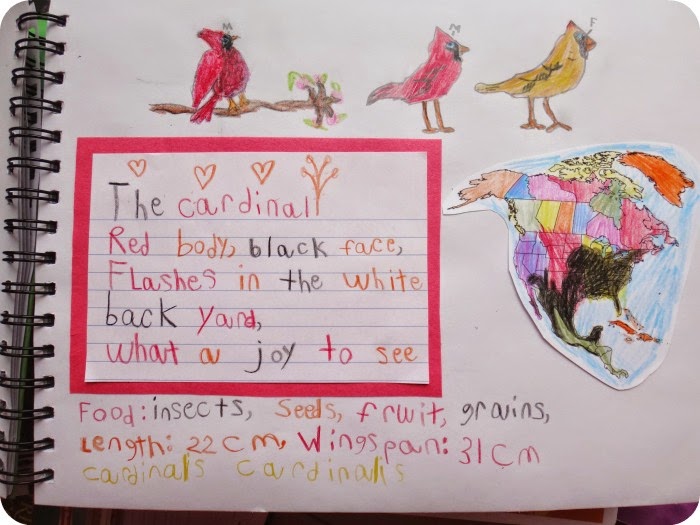 M M F
The cardinal
Red body, black face,
Flashes in the white
back yard,
what a joy to see
Food: insects, seeds, fruit, grains,
Length: 22 cm, Wingspan: 31 cm
cardinalis cardinalis